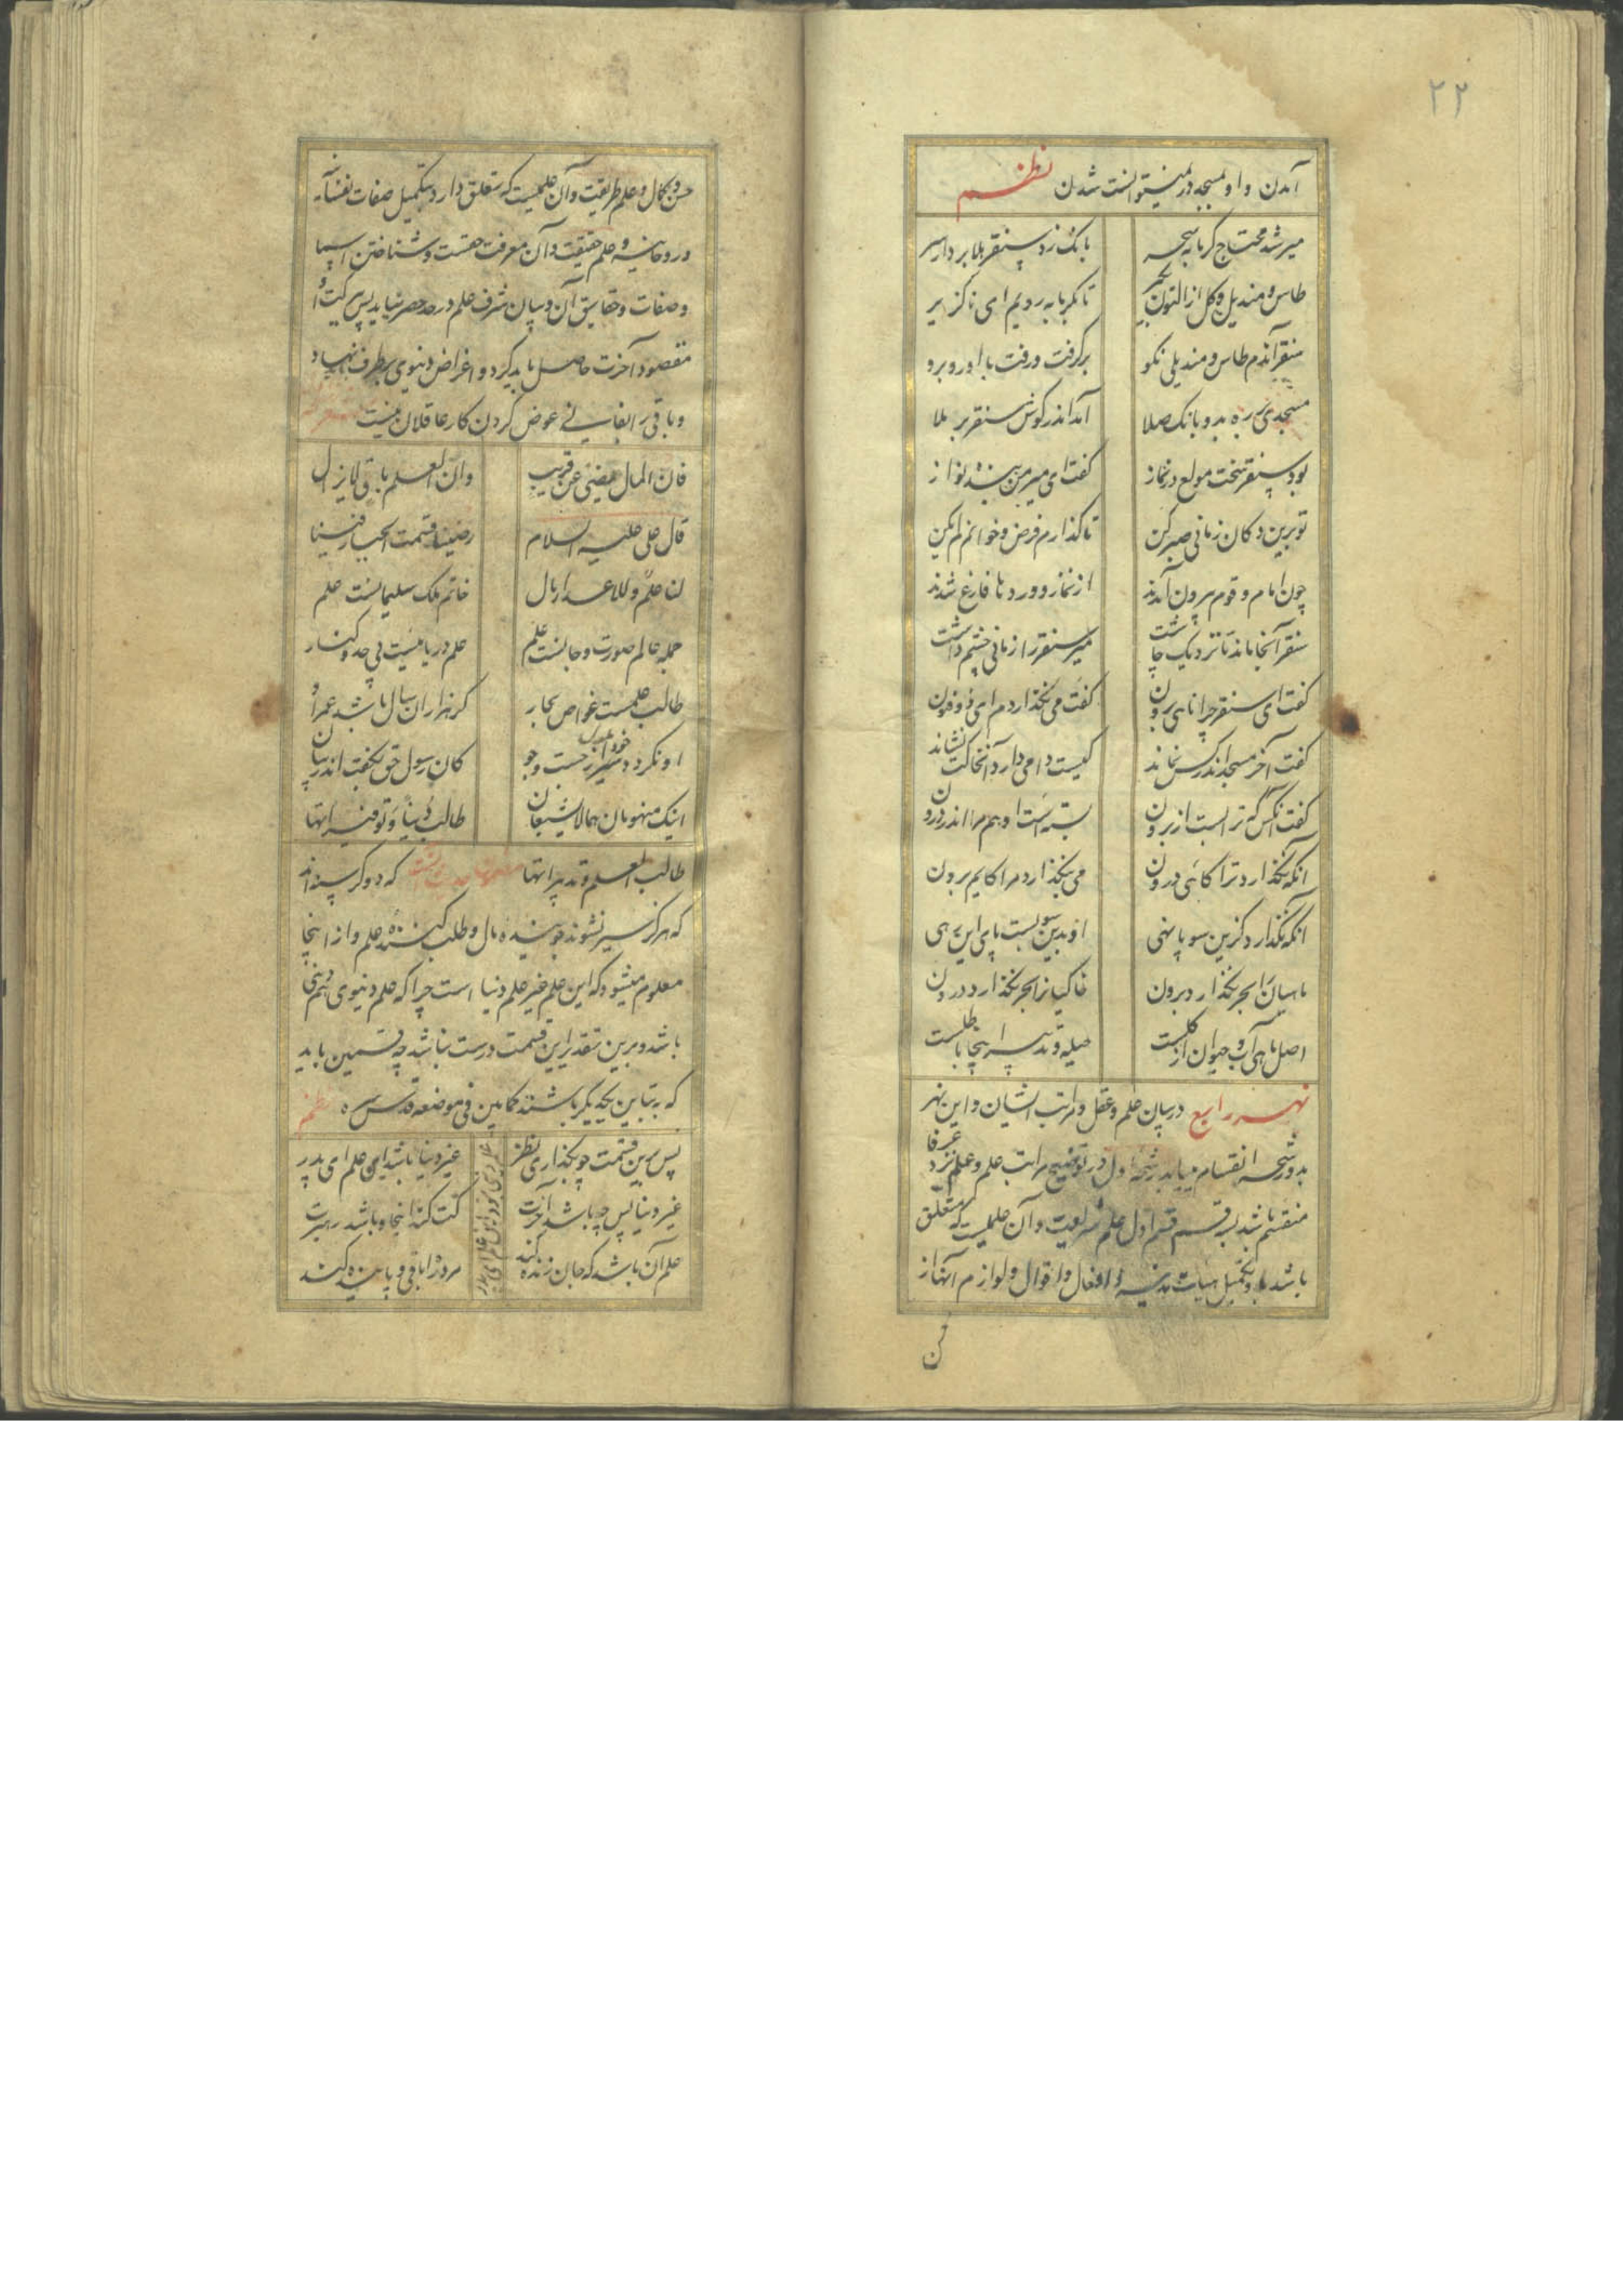 ۲۲
آمدن و او مسجد در نمیتوانست شدن نظم
میر شد محتاج گرمابه سحر
بانگ زد سنقر هلا بردار سر
طاس و مندیل و گل از التون بگیر
تا بگرمابه رویم ای ناگزیر
سنقر آندم طاس و مندیلی نکو
برگرفت و رفت با او رو برو
مسجدی بر ره بد و بانگ صلا
آمد اندر گوش سنقر بر ملا
بود سنقر سخت مولع در نماز
گفت ای میر من ای بنده نواز
تو برین دکان زمانی صبر کن
تا گذارم فرض و خوانم لم یکن
چون امام و قوم بیرون آمدند
از نماز و وردها فارغ شدند
سنقر آنجا ماند تا نزدیک چاشت
میر سنقر را زمانی چشم داشت
گفت ای سنقر چرا نایی برون
گفت می نگذاردم ای ذوفنون
گفت آخر مسجد اندر کس نماند
کیست وا می دارد آنجا کت نشاند
گفت آنکس که ترا بست از برون
بسته است او هم مرا اندر درون
آنکه نگذارد ترا کایی درون
می بنگذارد مرا کایم برون
آنکه نگذارد کزین سو پا نهی
او بدین سو بست پای این رهی
ماهیان را بحر نگذارد برون
خاکیان را بحر نگذارد درون
اصل ماهی آب و حیوان از گلست
حیله و تدبیر اینجا باطلست
نهر رابع در بیان علم و عقل و مراتب ایشان و این نهر
بدو رشحه انقسام میابد رشحه اول در توضیح مراتب علم و علم نزد عرفا
منقسم باشد بسه قسم قسم اول علم شریعت و آن علمیست که متعلق
باشد باو تکمیل هیات بدنیه و افعال و اقوال و لوازم آنها از
حسن و کمال و علم طریقت و آن علمیست که تعلق دارد بتکمیل صفات نفسانیه
و روحانیه و علم حقیقت و آن معرفت حقست و شناختن اسما
و صفات و حقایق آن و بیان شرف علم در حد حصر نیاید پس ببرکت او
مقصود آخرت حاصل باید کرد و اغراض دنیوی بر طرف نهاد
و باقی را بفانی عوض کردن کار عاقلان نیست
فان المال یفنی عن قریب
وان العلم باق لایزال
قال علی علیه السلام
رضینا قسمت الجبار فینا
لنا علم وللاعدا مال
خاتم ملک سلیمانست علم
جمله عالم صورت و جانست علم
علم دریاییست بی حد و کنار
طالب علمست غواص بحار
گر هزاران سال باشد عمر او
او نگردد سیر خود از جست و جو
کان رسول حق بگفت اندر بیان
اینک منهومان هما لایشبعان
طالب دنیا و توفیراتها
طالب العلم و تدبیراتها که دو گرسنه اند
که هرگز سیر نشوند جوینده مال و طلب کننده علم و از اینجا
معلوم میشود که این علم غیر علم دنیا است چرا که علم دنیوی هم دنیی
باشد و برین تقدیر این قسمت درست نباشد چه قسمین باید
که متباین یکدیگر باشند کما بین فی موضعه قدس سره نظم
پس برین قسمت چو بگذاری نظر
غیر دنیا باشد این علم ای پدر
غیر دنیا پس چه باشد آخرت
کت کند اینجا و باشد رهبرت
علم آن باشد که جان زنده کند
مرد را باقی و پاینده کند